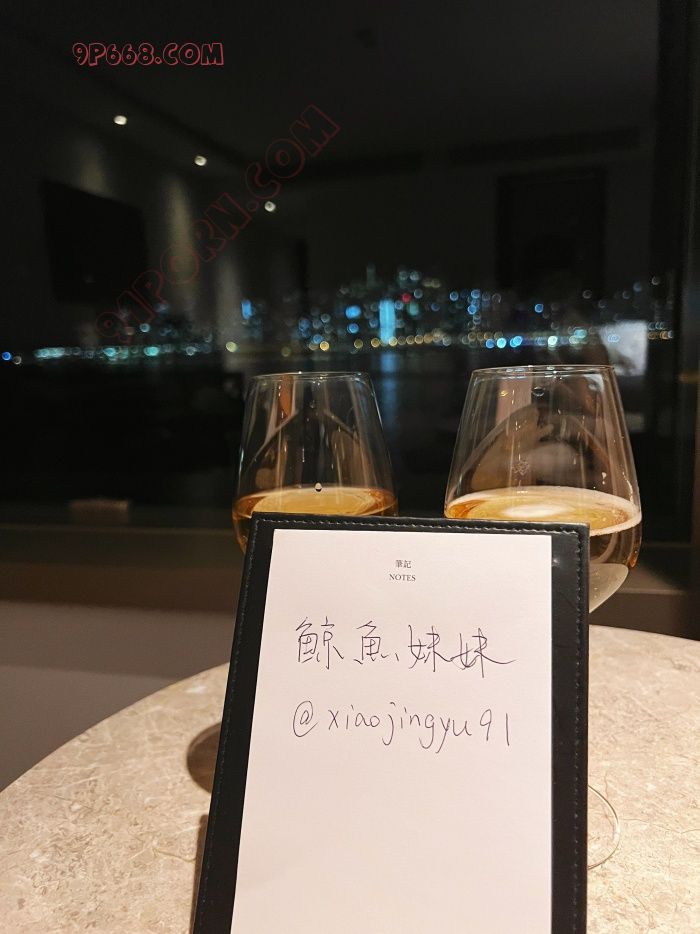 9P668.COM
91PORN.COM
筆記
NOTES
鯨魚妹妹
@xiaojingyu91